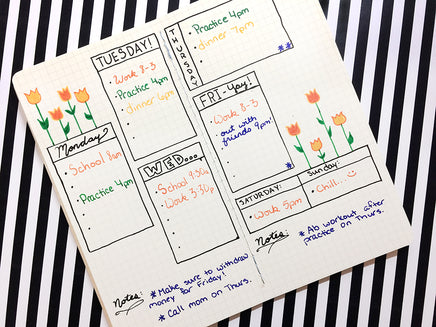 Monday
School 8am
Practice 4pm
TUESDAY!
Work 8-3
Practice 4pm
dinner 6pm
WED...
School 9:30a
Work 3:30p
Notes:
* Make sure to withdraw
money for Friday!
* Call mom on Thurs.
THURSDAY
Practice 4pm
dinner 7pm
**
FRI-yay!
Work 8-3
out with
friends 9pm
*
SATURDAY:
Work 5pm
Sunday:
Chill...
Notes:
* Ab workout after
practice on Thurs.